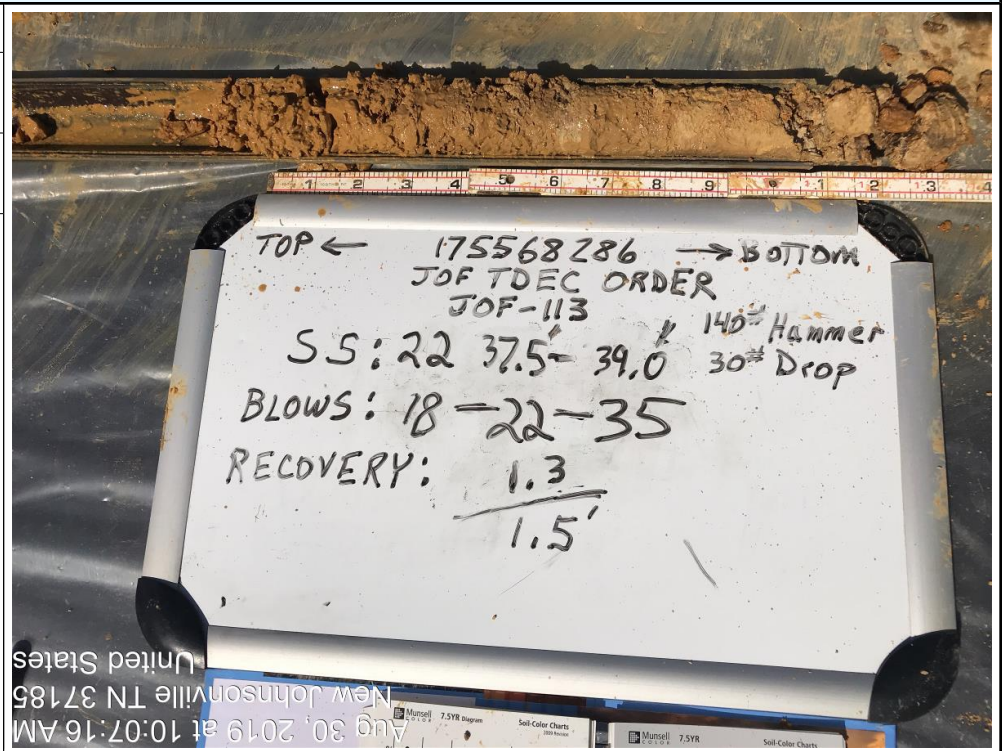 1 2 3 4 5 6 7 8 9 1 2 3 4
TOP ← 175568286 → BOTTOM
JOF TDEC ORDER
JOF-113
140# Hammer
30# Drop
SS: 22 37.5'- 39.0'
BLOWS: 18-22-35
RECOVERY: 1.3
1.5'
Aug 30, 2019 at 10:07:16 AM
New Johnsonville TN 37185
United States
Munsell COLOR 7.5YR Diagram Soil-Color Charts
Munsell COLOR 7.5YR Soil-Color Charts